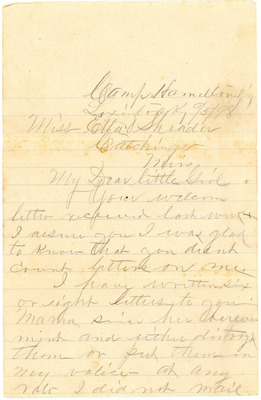 Camp Hamilton,
Lexington Ky 9/5/98
Miss Etta Shrader
Catchings
Miss,
My Dear little Girl
Your welcom
letter received last week
I assure you I was glad
to know that you didnt
count letters on me
I have written six
or eight letters to your
Mama since her bereve
ment and either distroy
them or put them in
my valice at any
rate I did not mail